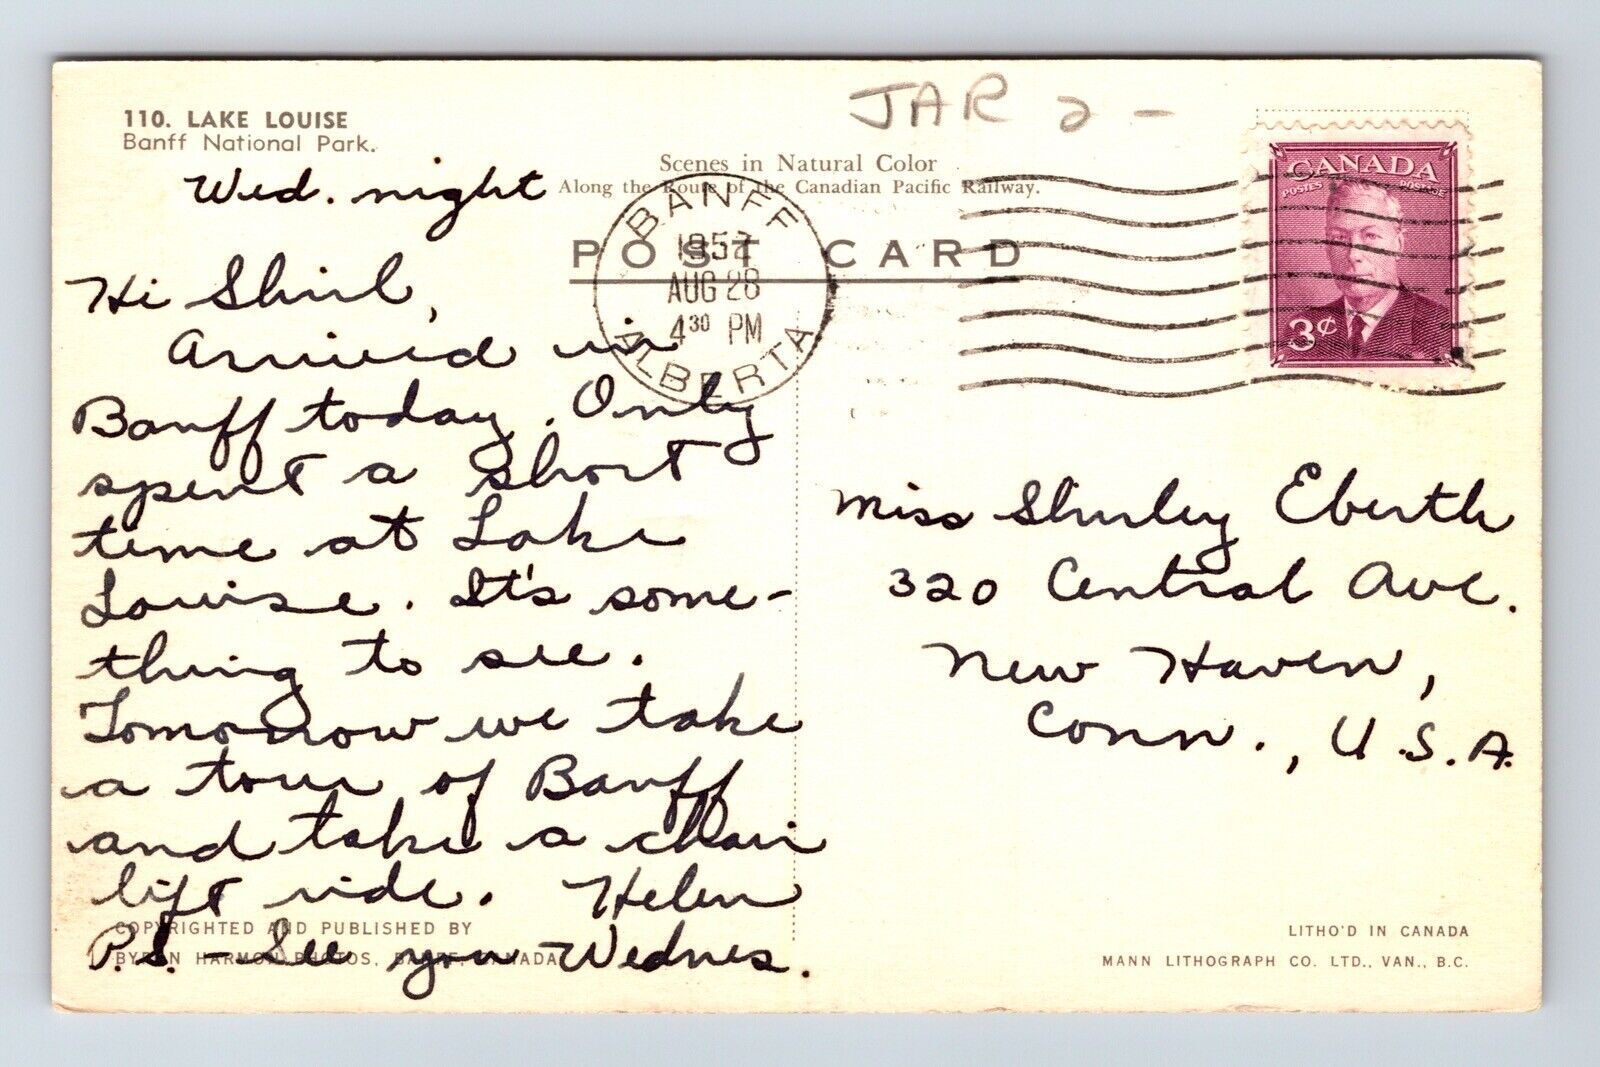 110. LAKE LOUISE
Banff National Park.
JAR 2-
Scenes in Natural Color
Along the Route of the Canadian Pacific Railway.
POST CARD
BANFF
AUG 28
4³⁰ PM
ALBERTA
CANADA
POSTES POSTAGE
3¢
Wed. night
Hi Shirl,
Arrived in
Banff today. Only
spent a short
time at Lake
Louise. It's some-
thing to see.
Tomorrow we take
a tour of Banff
and take a chair
lift ride. Helen
P.S. - See you Wednes.
Miss Shirley Eberth
320 Central Ave.
New Haven,
Conn., U.S.A.
COPYRIGHTED AND PUBLISHED BY
BYRON HARMON PHOTOS, BANFF, CANADA
LITHO'D IN CANADA
MANN LITHOGRAPH CO. LTD., VAN., B.C.